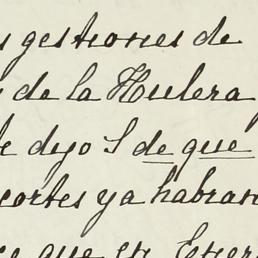 s gestiones de
de la Hulera
le dejo S de que
cortes ya habran
que en Enero